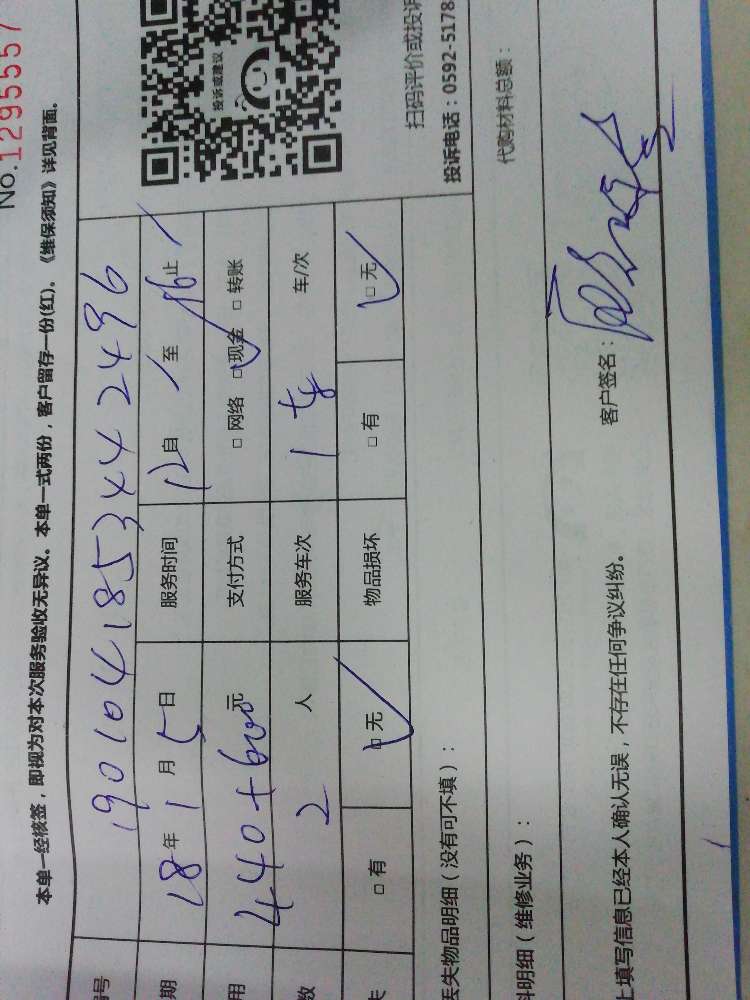 No.1295557
本单一经核签，即视为对本次服务验收无异议。本单一式两份，客户留存一份(红)。《维保须知》详见背面。
投诉或建议
编号 190104185344 2496
期 18年1月5日 服务时间 12自 至 16止
用 440+600元 支付方式 □网络 □现金 □转账
数 2 人 服务车次 1 车/次
失 □有 □无 物品损坏 □有 □无
扫码评价或投诉
投诉电话：0592-5178
丢失物品明细（没有可不填）：
料明细（维修业务）： 代购材料总额：
上填写信息已经本人确认无误，不存在任何争议纠纷。 客户签名：